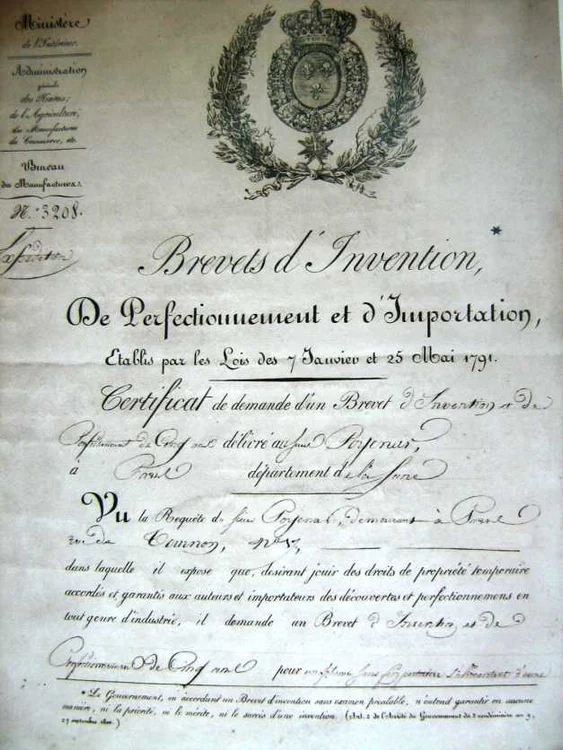 Ministère
de l'Intérieur.
Administration
générale
des Haras,
de l'Agriculture,
des Manufactures
du Commerce, etc.
Bureau
des Manufactures.
N.º 3208.
Expédition
*
Brevets d'Invention,
De Perfectionnement et d'Importation,
Etablis par les Lois des 7 Janvier et 25 Mai 1791.
Certificat de demande d'un Brevet d'Invention et de
Perfectionnement de Cinq ans délivré au Sieur
à département de la Seine
Vu la Requête du Sieur demeurant à
rue de Tournon,
dans laquelle il expose que, desirant jouir des droits de propriété temporaire
accordés et garantis aux auteurs et importateurs des découvertes et perfectionnemens en
tout genre d'industrie, il demande un Brevet d'Invention et de
Perfectionnement de Cinq ans pour un
* Le Gouvernement, en accordant un Brevet d'invention sans examen préalable, n'entend garantir en aucune
manière, ni la priorité, ni le mérite, ni le succès d'une invention. (Art. 2 de l'Arrêté du Gouvernement du 5 vendémiaire an 9,
27 septembre 1800.)